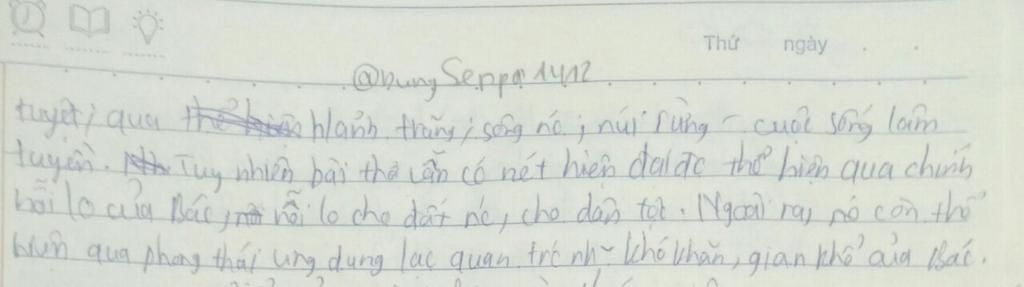 Thứ ngày
@DungSenpai1412
tuyết; qua h/ảnh trăng; sông nc; núi rừng - cuộc sống lâm
tuyền. Tuy nhiên bài thơ vẫn có nét hiện đại đc thể hiện qua chính
nỗi lo của Bác, nỗi lo cho đất nc, cho dân tộc. Ngoài ra, nó còn thể
hiện qua phong thái ung dung lạc quan trc nh~ khó khăn, gian khổ của Bác.